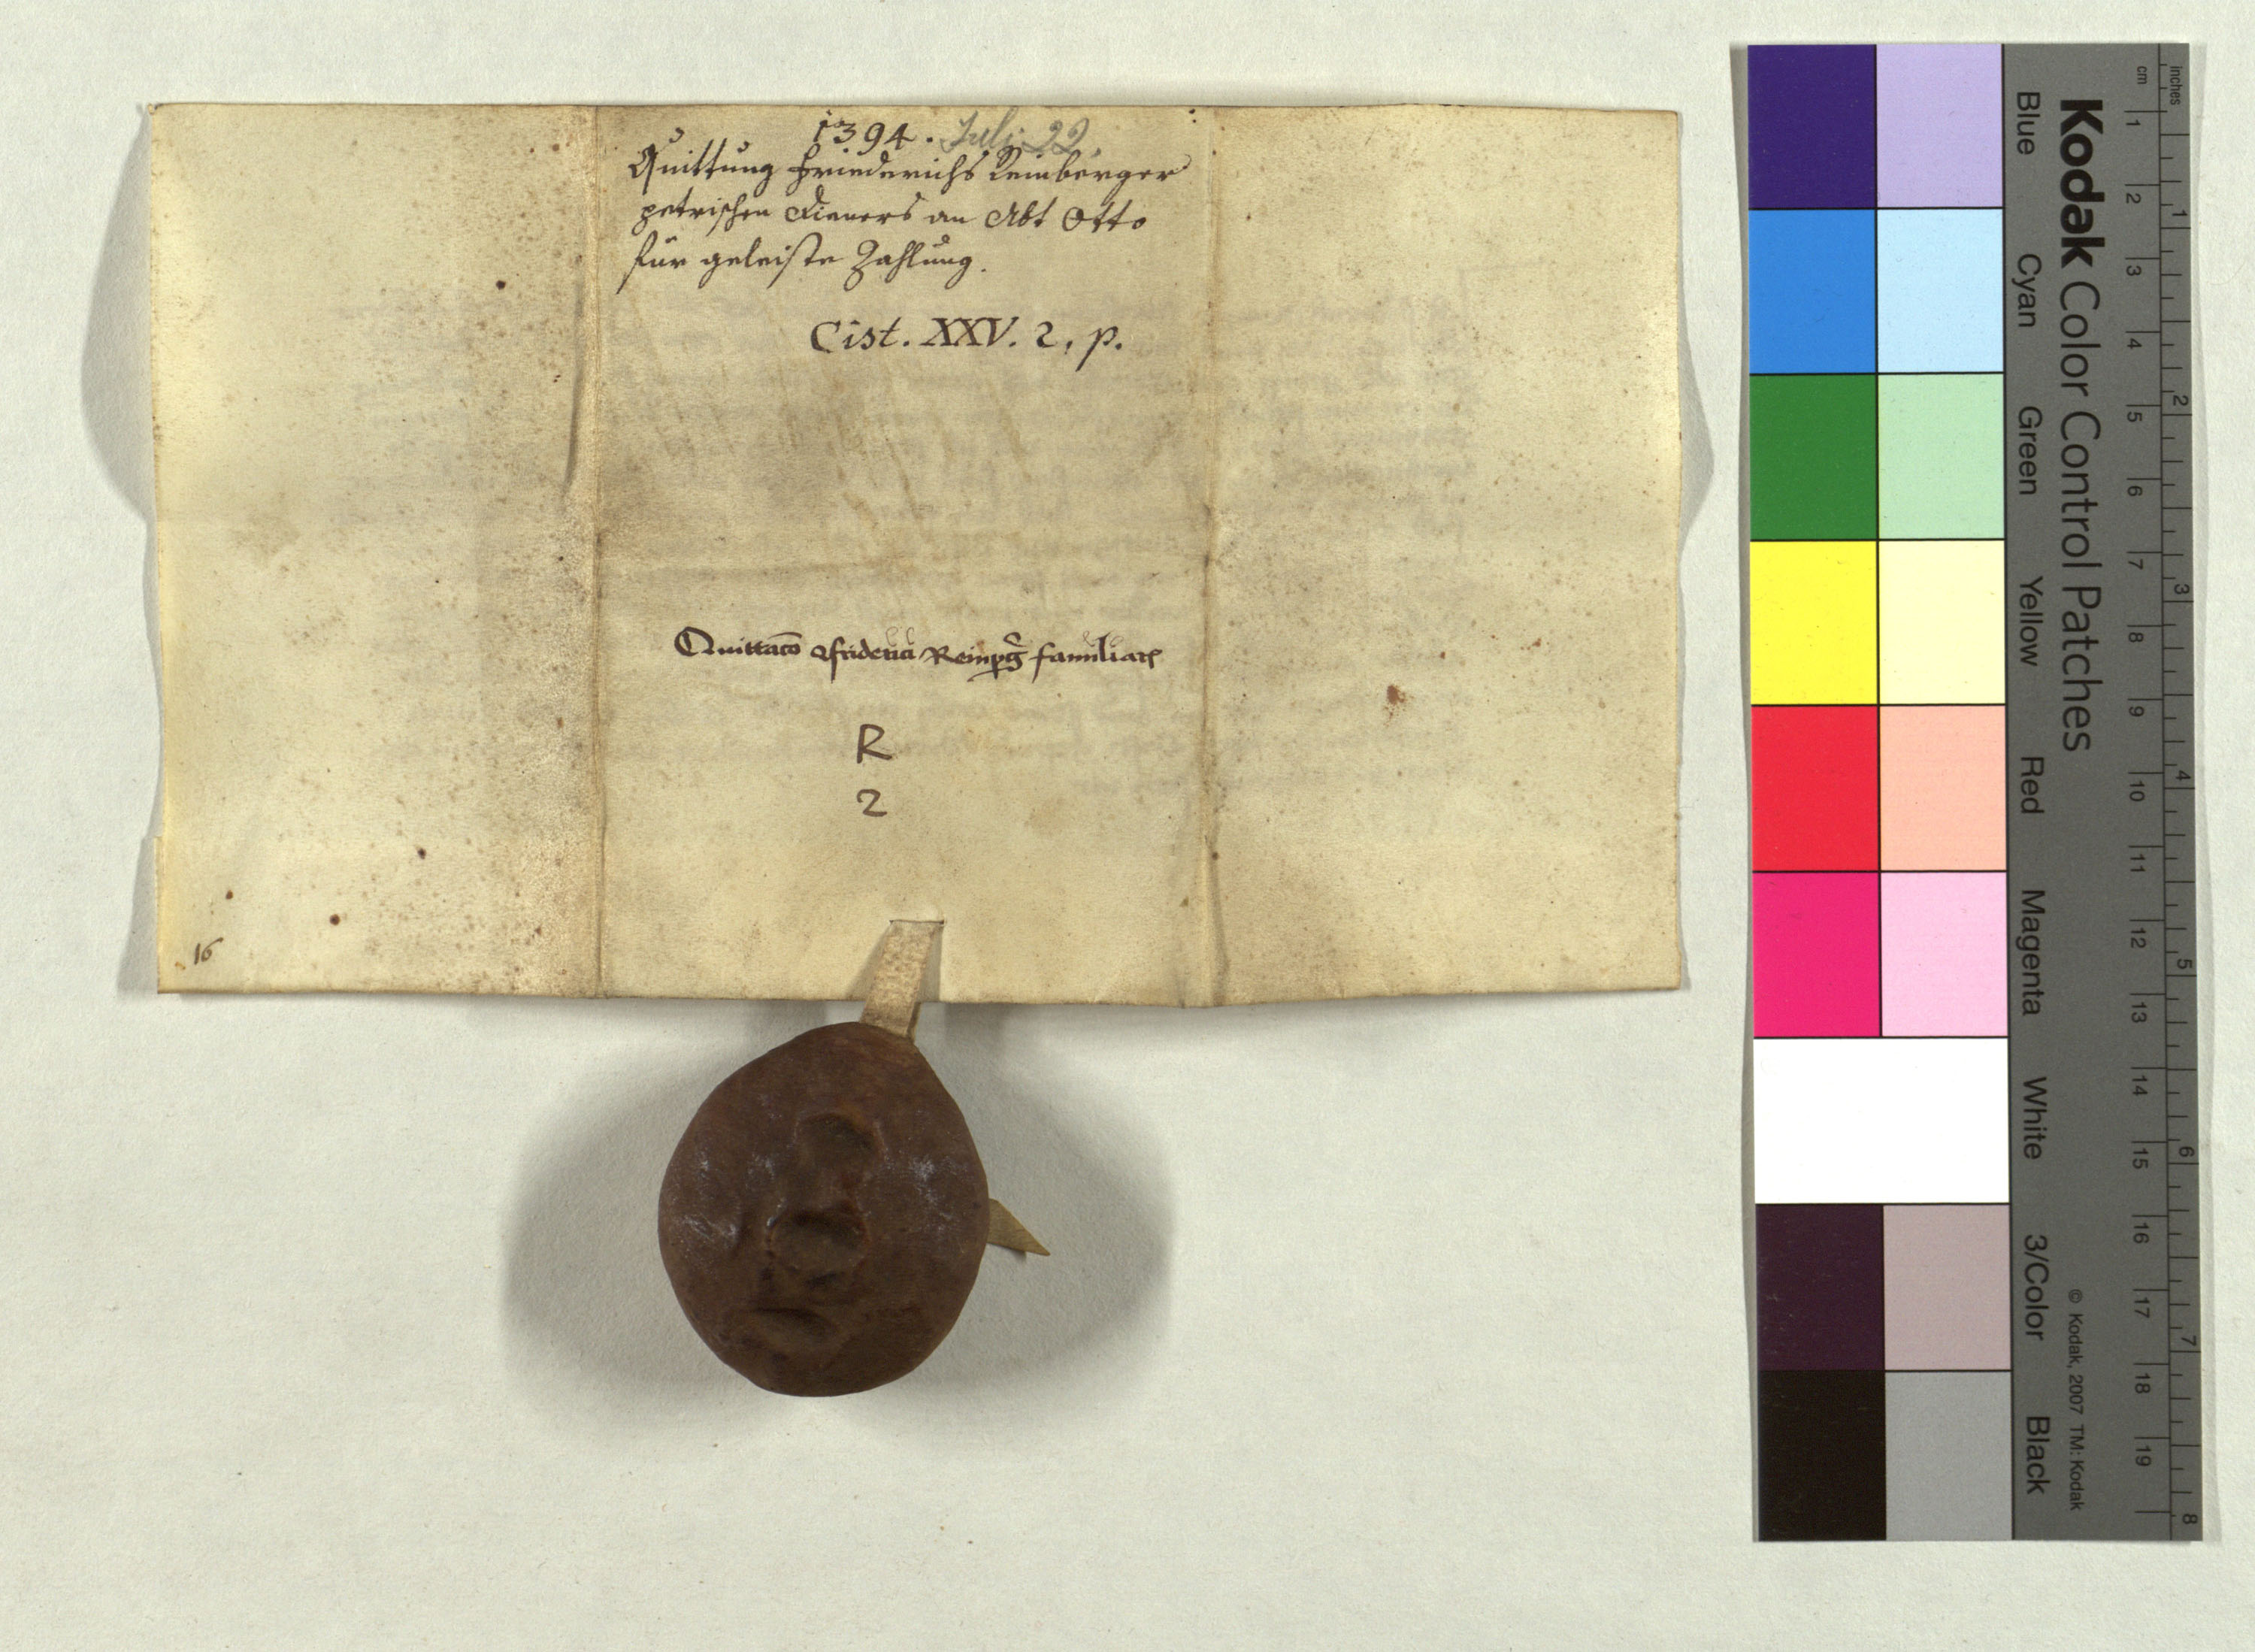 1394. Juli 22.
Quittung Friederichs Reinberger
petrischen Dieners an Abt Otto
für geleiste Zahlung.
Cist. XXV. 2. p.
Quittaco Friderici Reinpg familiars
R
2
16
Kodak Color Control Patches
Blue Cyan Green Yellow Red Magenta White 3/Color Black
© Kodak, 2007 TM: Kodak
cm 1 2 3 4 5 6 7 8 9 10 11 12 13 14 15 16 17 18 19
inches 1 2 3 4 5 6 7 8